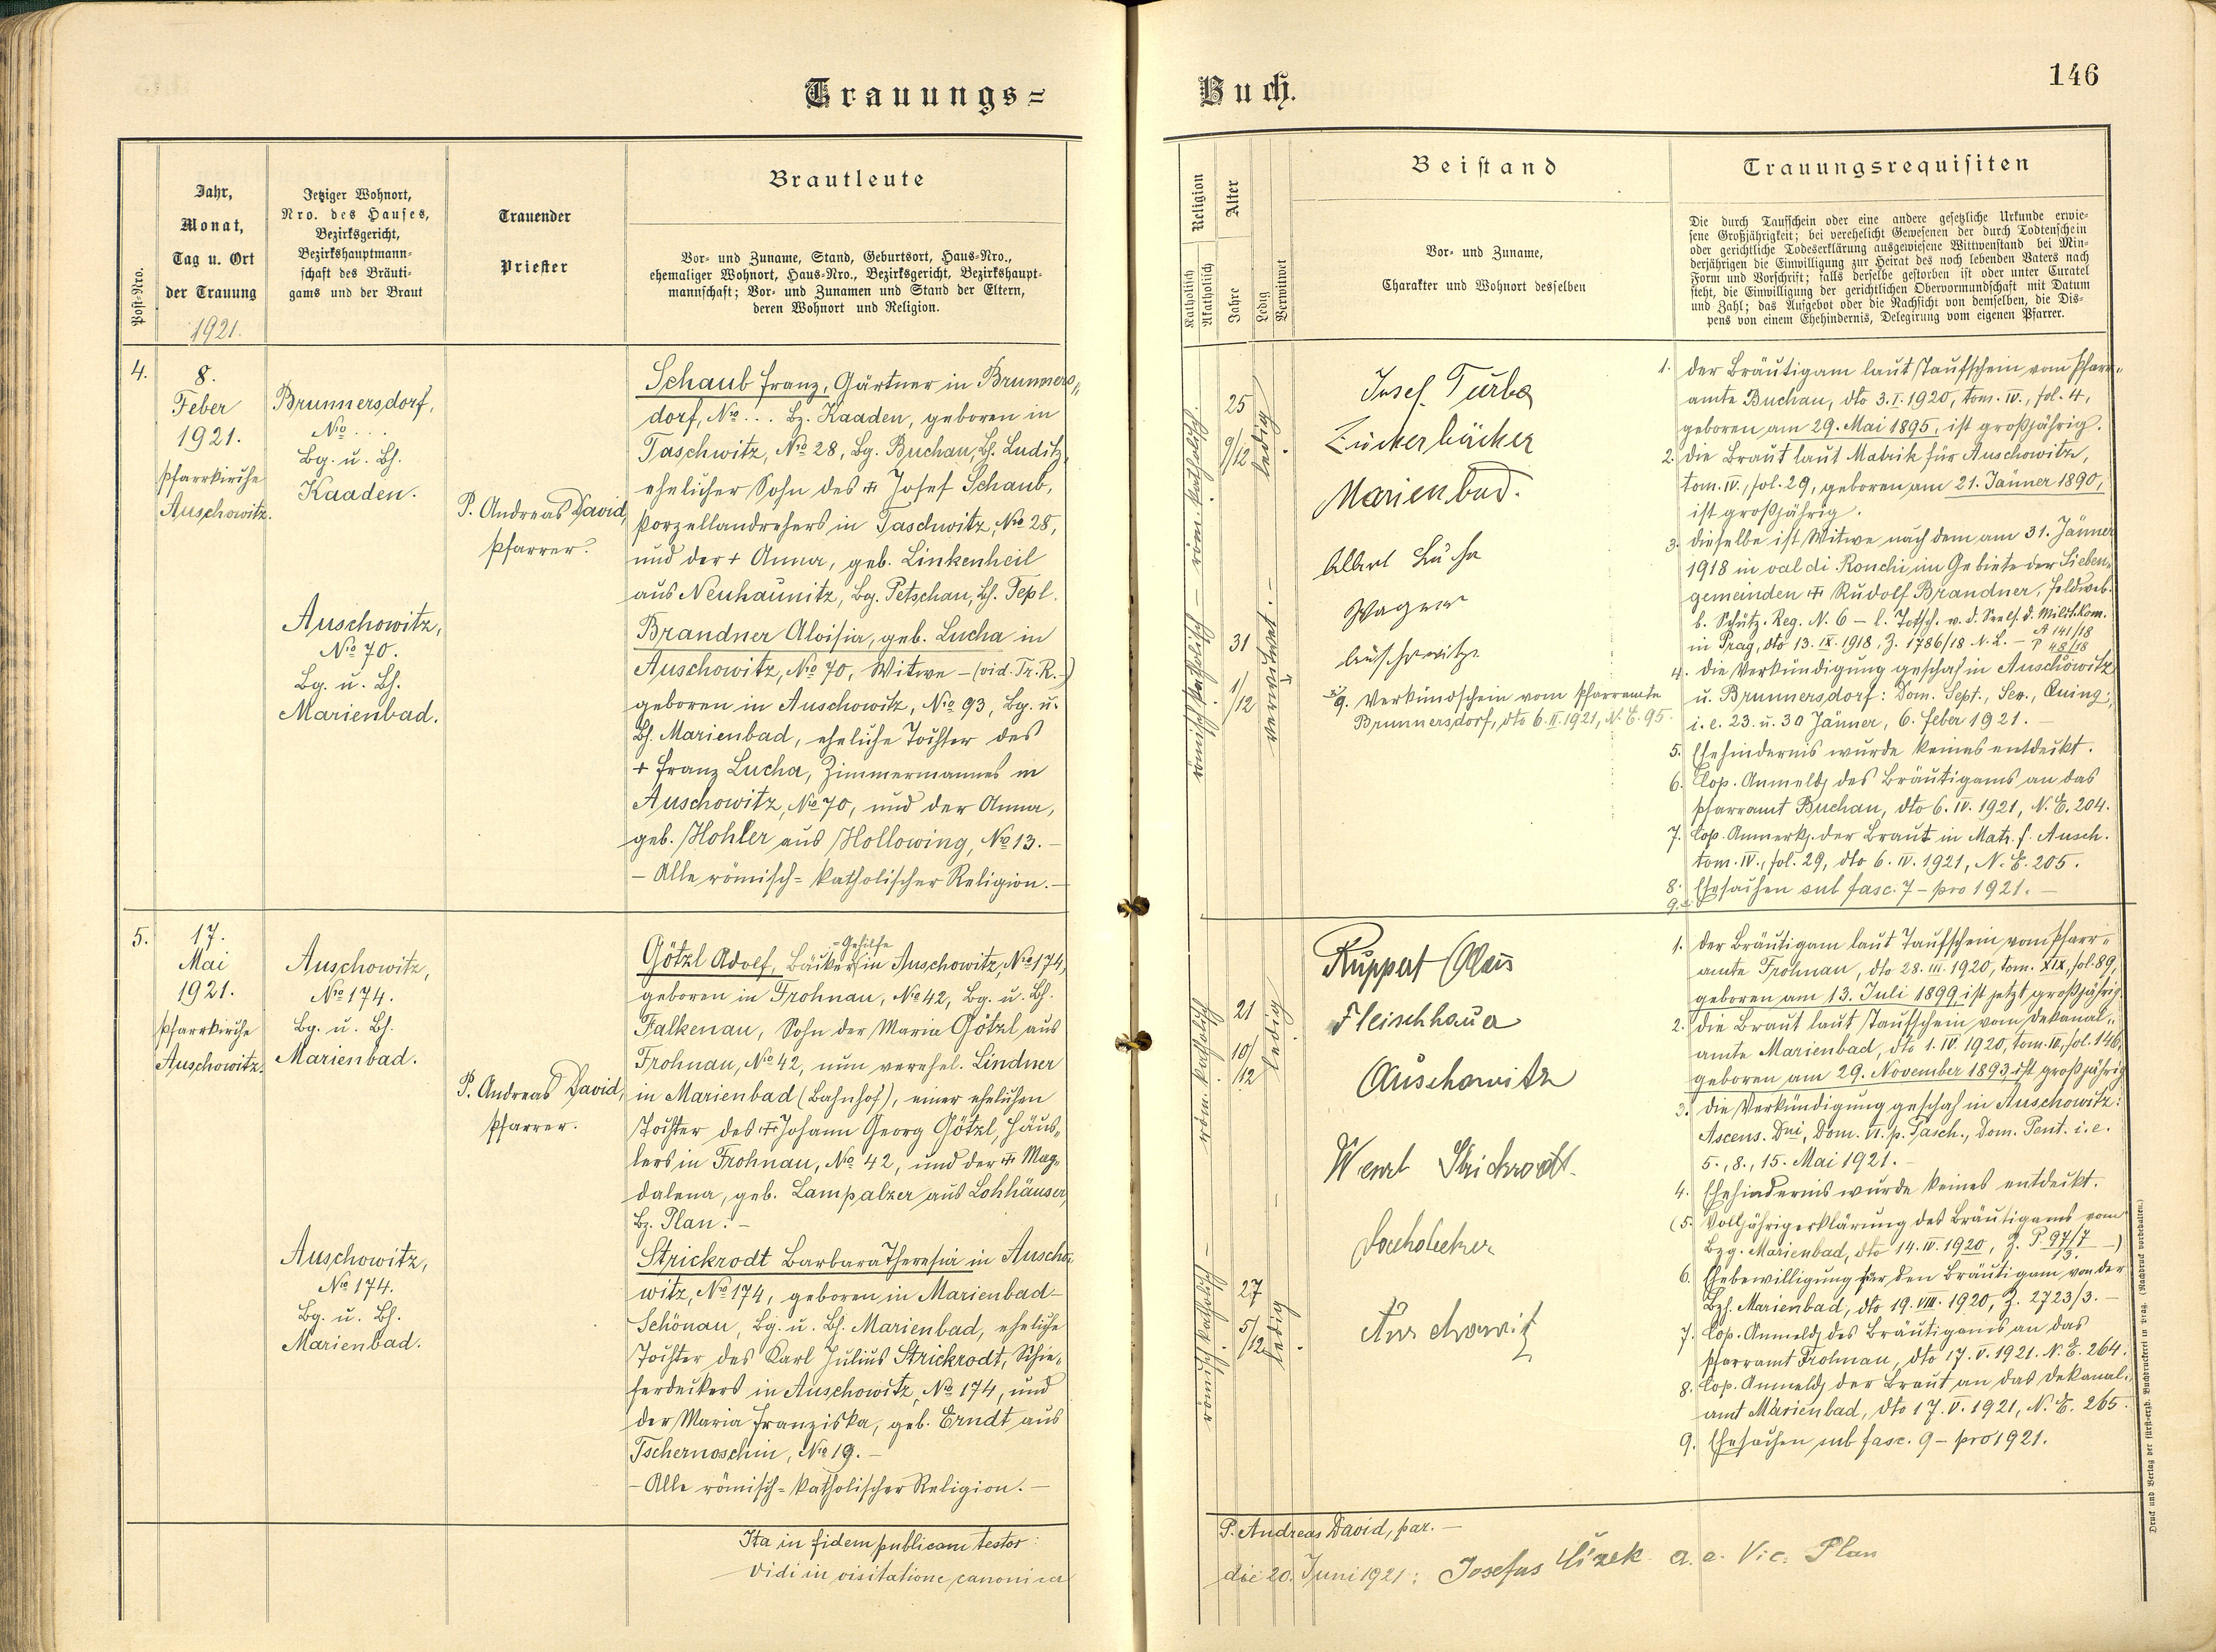 Trauungs=
Jahr,
Monat,
Tag u. Ort
der Trauung
1921.
Post-Nro.
Jetziger Wohnort,
Nro. des Hauses,
Bezirksgericht,
Bezirkshauptmann-
schaft des Bräuti-
gams und der Braut
Trauender
Priester
Brautleute
Vor- und Zuname, Stand, Geburtsort, Haus-Nro.,
ehemaliger Wohnort, Haus-Nro., Bezirksgericht, Bezirkshaupt-
mannschaft; Vor- und Zunamen und Stand der Eltern,
deren Wohnort und Religion.
4.
8.
Feber
1921.
Pfarrkirche
Auschowitz.
Brunnersdorf,
No ...
Bg. u. Bh.
Kaaden.
Auschowitz,
No 70.
Bg. u. Bh.
Marienbad.
P. Andreas David,
Pfarrer.
Schaub Franz, Gärtner in Brunners„
dorf, No ... Bz. Kaaden, geboren in
Taschwitz, No 28, Bg. Buchau, Bh. Luditz,
ehelicher Sohn des ++ Josef Schaub,
Porzellandrehers in Taschwitz, No 28,
und der + Anna, geb. Linkenheil
aus Neukaunitz, Bg. Petschau, Bh. Tepl.
Brandner Aloisia, geb. Lucha in
Auschowitz, No 70, Witwe – (vid. Tr. R.-)
geboren in Auschowitz, No 93, Bg. u.
Bh. Marienbad, eheliche Tochter des
+ Franz Lucha, Zimmermannes in
Auschowitz, No 70, und der Anna,
geb. Hohler aus Hollowing, No 13. –
– Alle römisch=katholischer Religion. –
5.
17.
Mai
1921.
Pfarrkirche
Auschowitz.
Auschowitz,
No 174.
Bg. u. Bh.
Marienbad.
Auschowitz,
No 174.
Bg. u. Bh.
Marienbad.
P. Andreas David,
Pfarrer.
=Gehilfe
Götzl Adolf, Bäcker in Auschowitz, No 174,
geboren in Frohnau, No 42, Bg. u. Bh.
Falkenau, Sohn der Maria Götzl aus
Frohnau, No 42, nun verehel. Lindner
in Marienbad (Bahnhof), einer ehelichen
Tochter des ++ Johann Georg Götzl, Häus„
lers in Frohnau, No 42, und der ++ Mag„
dalena, geb. Lampalzer aus Lohhäuser,
Bz. Plan. –
Strickrodt Barbara Theresia in Auscho„
witz, No 174, geboren in Marienbad–
Schönau, Bg. u. Bh. Marienbad, eheliche
Tochter des Karl Julius Strickrodt, Schie„
ferdeckers in Auschowitz, No 174, und
der Maria Franziska, geb. Erndt aus
Tschernoschin, No 19. –
– Alle römisch=katholischer Religion. –
Ita in fidem publicam testor:
Vidi in visitatione canonica
Buch.
146
Religion
Katholisch
Akatholisch
Alter
Jahre
Ledig
Verwitwet
Beistand
Vor- und Zuname,
Charakter und Wohnort desselben
Trauungsrequisiten
Die durch Taufschein oder eine andere gesetzliche Urkunde erwie-
sene Großjährigkeit; bei verehelicht Gewesenen der durch Todtenschein
oder gerichtliche Todeserklärung ausgewiesene Wittwenstand bei Min-
derjährigen die Einwilligung zur Heirat des noch lebenden Vaters nach
Form und Vorschrift; falls derselbe gestorben ist oder unter Curatel
steht, die Einwilligung der gerichtlichen Obervormundschaft mit Datum
und Zahl; das Aufgebot oder die Nachsicht von demselben, die Dis-
pens von einem Ehehindernis, Delegirung vom eigenen Pfarrer.
röm. katholisch. –
25
9/12
ledig
römisch katholisch –
31
1/12
verwitwet. –
Josef Turba
Zuckerbäcker
Marienbad.
Albert Lucha
Wagner
Auschowitz
9. Verkündschein vom Pfarramte
Brunnersdorf, dto 6.II.1921, N. E. 95.
1. der Bräutigam laut Taufschein vom Pfarr„
amte Buchau, dto 3.I.1920, tom. IV., fol. 4,
geboren am 29. Mai 1895, ist großjährig.
2. die Braut laut Matrik für Auschowitz,
tom. IV., fol. 29, geboren am 21. Jänner 1890,
ist großjährig.
3. dieselbe ist Witwe nach dem am 31. Jänner
1918 in val di Ronchi im Gebiete der Sieben„
gemeinden ++ Rudolf Brandner, Feldweb.
b. Schütz. Reg. N. 6 – l. Totsch. v. d. Seels. d. Milit. Kom.
in Prag, dto 13. IX. 1918, Z. 1786/18 N. L. – A 141/18
P 48/18
4. die Verkündigung geschah in Auschowitz
u. Brunnersdorf: Dom. Sept., Sex., Quing.;
i. e. 23. u. 30 Jänner, 6. Feber 1921. –
5. Ehehindernis wurde keines entdeckt.
6. Cop. Anmeldg des Bräutigams an das
Pfarramt Buchau, dto 6. IV. 1921, N. E. 204.
7. Cop. Anmerkg. der Braut in Matr. f. Ausch.
tom. IV., fol. 29, dto 6. IV. 1921, N. E. 205.
8. Ehesachen sub fasc. 7 – pro 1921. –
9.
röm. katholisch –
21
10/12
ledig
römisch katholisch –
27
5/12
ledig
Ruppert Alois
Fleischhauer
Auschowitz
Wenzl Strickrodt.
Dachdecker
Auschowitz
1. der Bräutigam laut Taufschein vom Pfarr„
amte Frohnau, dto 28. III. 1920, tom. XIX, fol. 89,
geboren am 13. Juli 1899 ist jetzt großjährig.
2. die Braut laut Taufschein vom Dekanal„
amte Marienbad, dto 1. IV. 1920, tom. III, fol. 146,
geboren am 29. November 1893, ist großjährig.
3. die Verkündigung geschah in Auschowitz:
Ascens. Dni, Dom. VI. p. Pasch., Dom. Pent. i. e.
5., 8., 15. Mai 1921. –
4. Ehehindernis wurde keines entdeckt.
(5. Volljährigerklärung des Bräutigams vom
Bzg. Marienbad, dto 14. IV. 1920, Z. P 97/7 –)
13.
6. Ehebewilligung für den Bräutigam von der
Bzh. Marienbad, dto 19. VIII. 1920, Z. 2723/3. –
7. Cop. Anmeldg des Bräutigams an das
Pfarramt Frohnau, dto 17. V. 1921. N. E. 264.
8. Cop. Anmeldg der Braut an das Dekanal„
amt Marienbad, dto 17. V. 1921, N. E. 265.
9. Ehesachen sub fasc. 9 – pro 1921.
P. Andreas David, par. –
die 20. Juni 1921: Josefus Čížek a. e. Vic. Plan
Druck und Verlag der fürst-erzb. Buchdruckerei in Prag. (Nachdruck vorbehalten.)